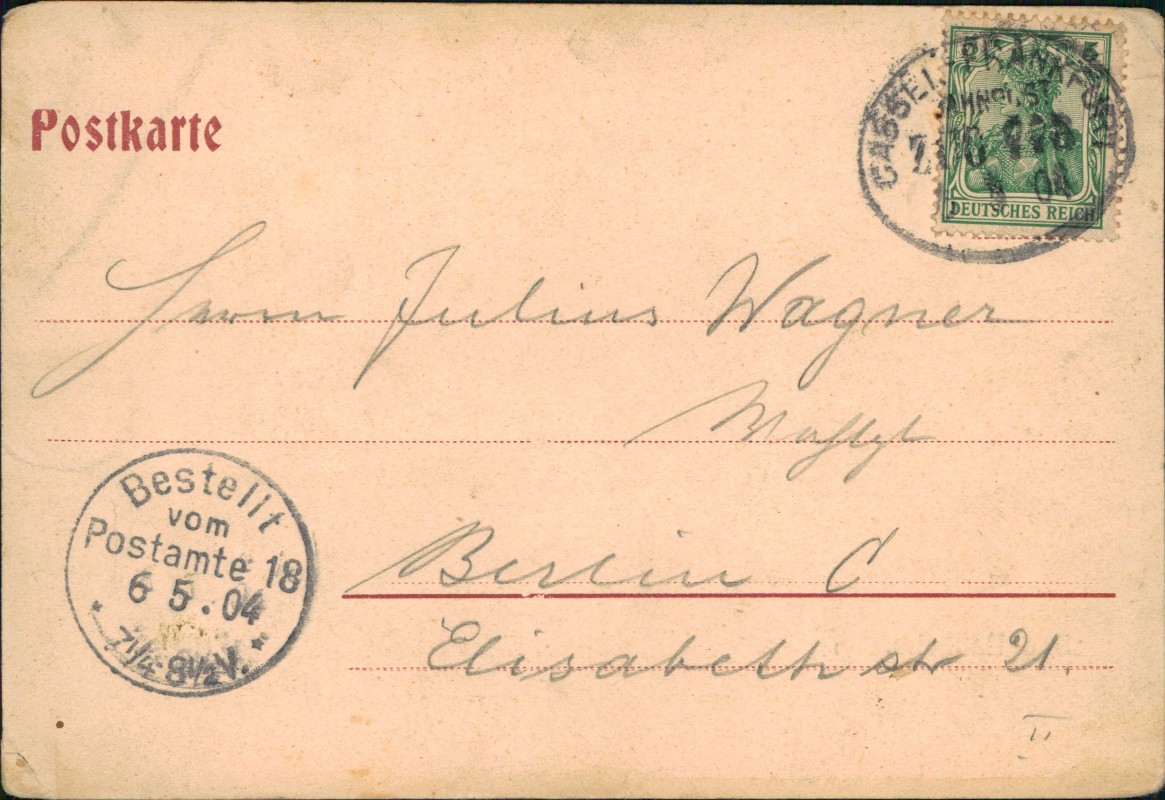 Postkarte
5 5
CASSEL FRANKFURT
BAHNPOST
ZUG
04
DEUTSCHES REICH
Herrn Julius Wagner
Berlin C
Elisabeth str 21.
II
Bestellt
vom
Postamte 18
6 5.04
7¼-8½V.